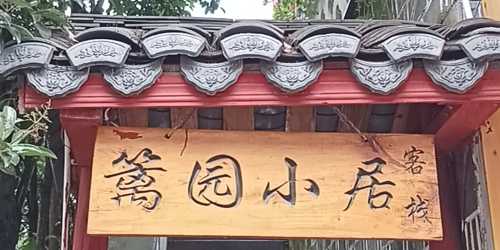 篱园小居
客栈